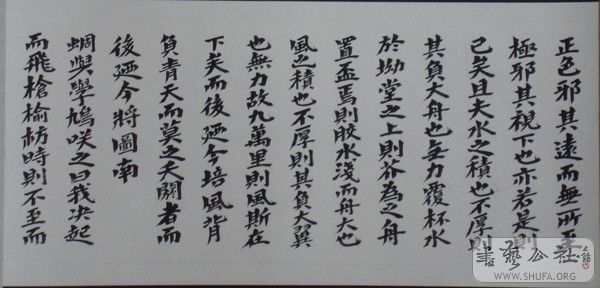 正色邪其遠而無所至
極邪其視下也亦若是則
已矣且夫水之積也不厚則
其負大舟也无力覆杯水
於坳堂之上則芥為之舟
置盃焉則胶水淺而舟大也
風之積也不厚則其負大翼
也無力故九萬里則風斯在
下矣而後廼今培風背
負青天而莫之夭閼者而
後廼今將圖南
蜩與學鳩咲之曰我决起
而飛槍榆枋時則不至而
書藝公社
WWW.SHUFA.ORG